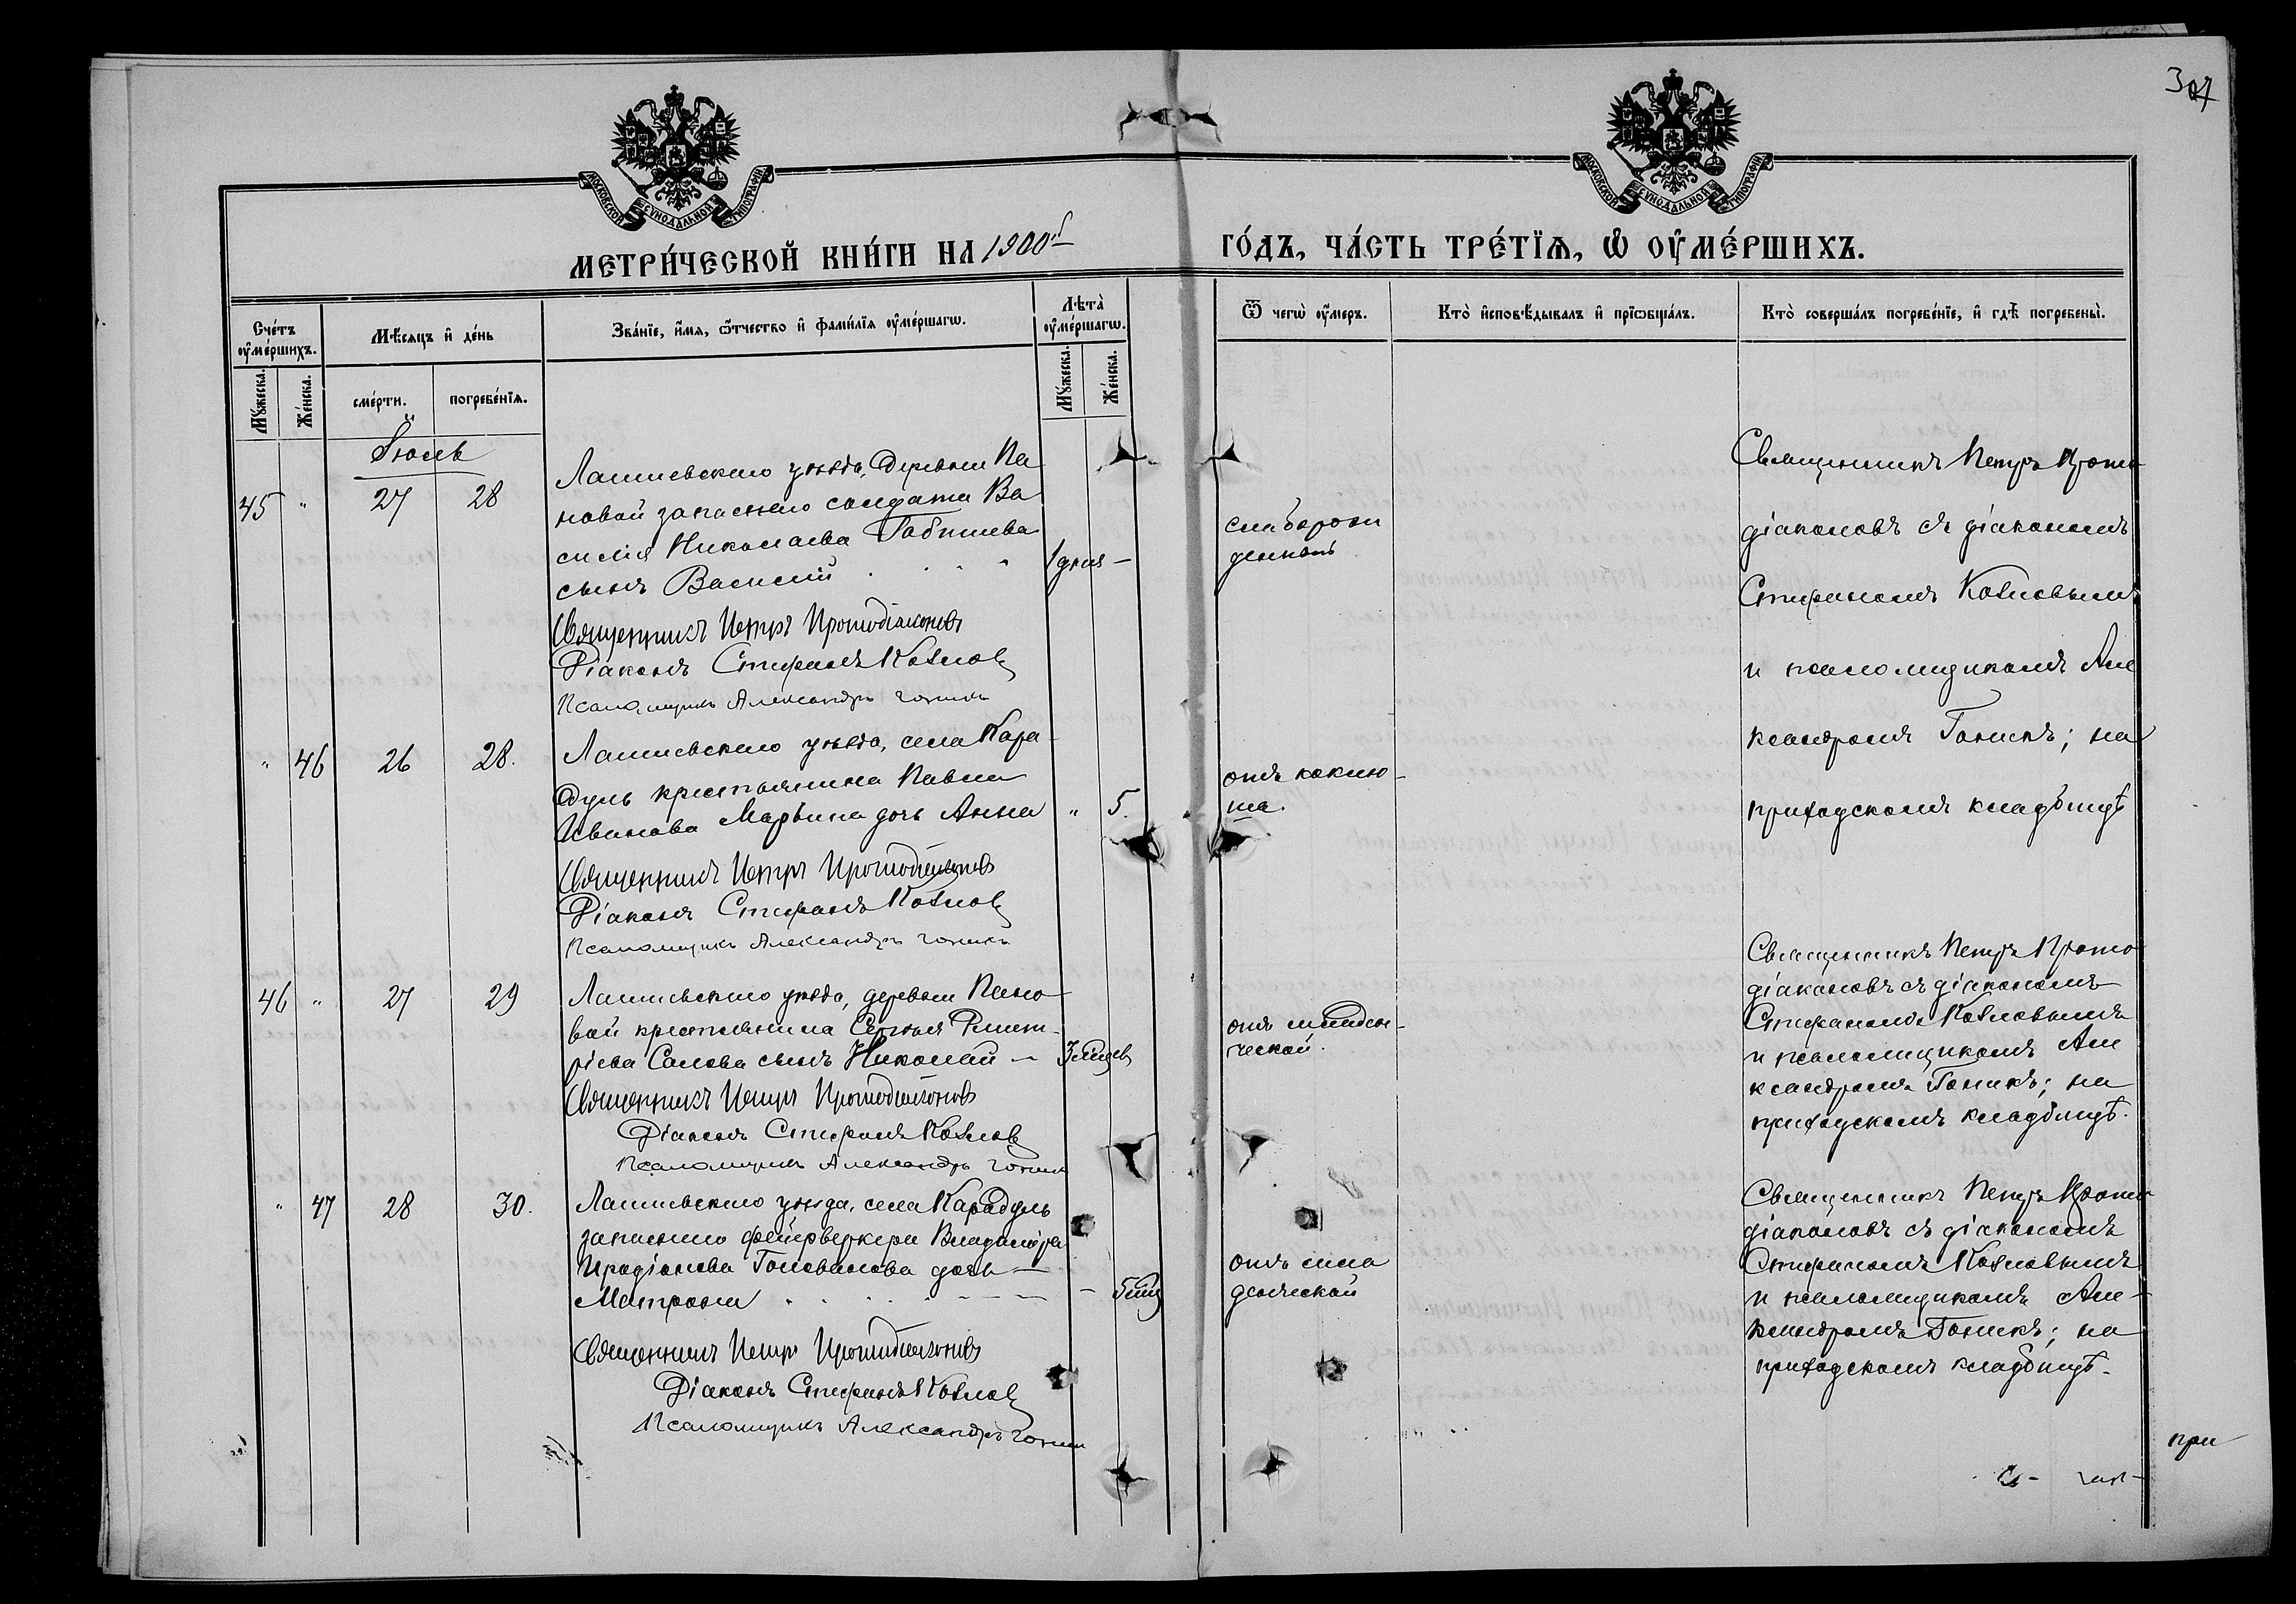 307
МОСКОВСКОЙ СѴНОДАЛЬНОЙ ТИПОГРАФІИ
МОСКОВСКОЙ СѴНОДАЛЬНОЙ ТИПОГРАФІИ
МЕТРИ́ЧЕСКОЙ КНИ́ГИ НА 1900й
ГО́ДЪ, ЧА́СТЬ ТРЕ́ТЇѦ, Ѡ҆ ОУ҆МЕ́РШИХЪ.
Сче́тъ оу҆ме́ршихъ.
Мꙋ́жеска.
Же́нска.
Мѣ́сяцъ и҆ де́нь
сме́рти.
погребе́нїѧ.
Зва́нїе, и҆́мѧ, ѻ҆́тчество и҆ фами́лїѧ оу҆ме́ршагѡ.
Лѣ́та оу҆ме́ршагѡ.
Мꙋ́жеска.
Же́нска.
Ѿ чегѡ̀ оу҆́меръ.
Кто̀ и҆сповѣ́дывалъ и҆ прїѡбща́лъ.
Кто̀ соверша́лъ погребе́нїе, и҆ гдѣ̀ погребены̀.
Іюль
45 " 27 28
Лаишевскаго уѣзда, деревни Па
новой запаснаго солдата Ва
силія Николаева Габишева
сынъ Василій
1 дня –
слаборож
денности
Священникъ Петръ Протодіаконовъ
Діаконъ Стефанъ Козловъ
Псаломщикъ Александръ Гоникъ
Священникъ Петръ Прото
діаконовъ съ діакономъ
Стефаномъ Козловымъ
и псаломщикомъ Але
ксандромъ Гоникъ; на
приходскомъ кладбищѣ
" 46 26 28.
Лаишевскаго уѣзда, села Кара-
дуль крестьянина Павла
Иванова Марьина дочь Анна
" 5.
отъ коклю-
ша.
Священникъ Петръ Протодіаконовъ
Діаконъ Стефанъ Козловъ
Псаломщикъ Александръ Гоникъ
46 " 27 29
Лаишевскаго уѣзда, деревни Пано
вой крестьянина Сергѣя Димит-
ріева Салова сынъ Николай –
3 мѣсяцев
отъ младен-
ческой.
Священникъ Петръ Протодіаконовъ
Діаконъ Стефанъ Козловъ
Псаломщикъ Александръ Гоникъ
Священникъ Петръ Прото
діаконовъ съ діакономъ
Стефаномъ Козловымъ
и псаломщикомъ Але
ксандромъ Гоникъ; на
приходскомъ кладбищѣ.
" 47 28 30.
Лаишевскаго уѣзда, села Карадуль
запаснаго фейерверкера Владиміра
Иродіонова Голованова дочь –
Матрона
– 5 мѣц
отъ мла
денческой
Священникъ Петръ Протодіаконовъ
Діаконъ Стефанъ Козловъ
Псаломщикъ Александръ Гоникъ
Священникъ Петръ Прото
діаконовъ съ діакономъ
Стефаномъ Козловымъ
и псаломщикомъ Але-
ксандромъ Гоникъ; на
приходскомъ кладбищѣ.
при